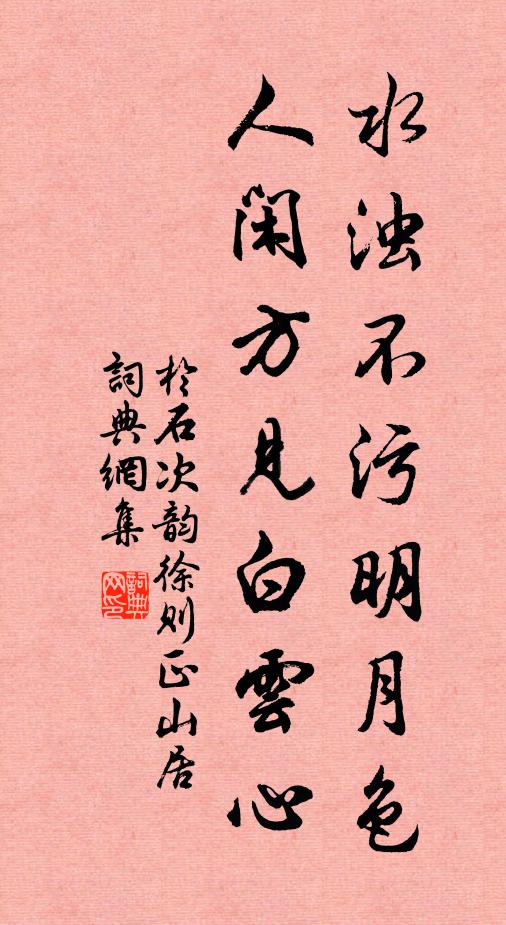 水浊不污明月色
人闲方见白雲心
於石次韵徐则正山居
詞典網集
詞典網印